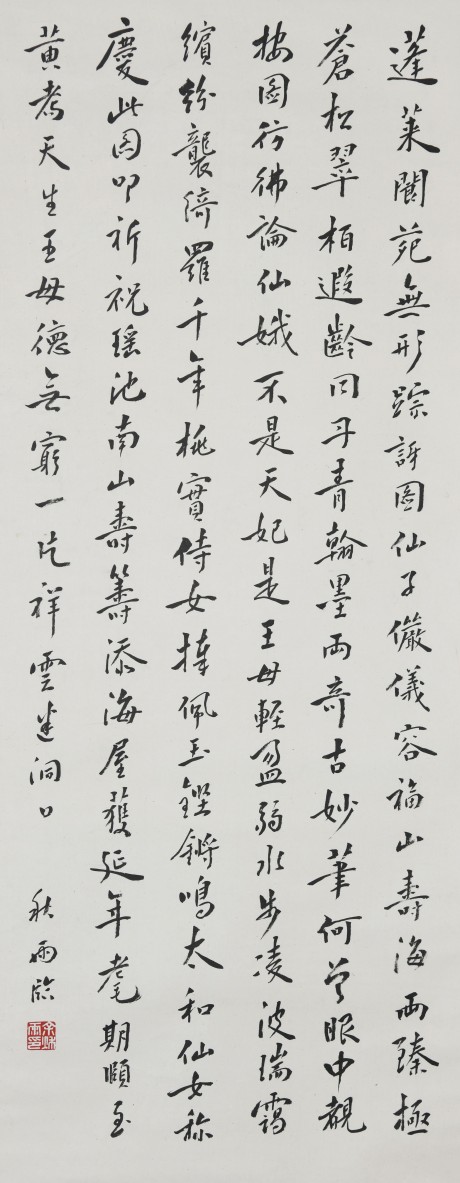 蓬萊閬苑無形踪訝圖仙子儼儀容福山壽海兩臻極
蒼松翠柏遐齡同丹青翰墨兩奇古妙筆何曾眼中覩
按圖彷彿論仙娥不是天妃是王母輕盈弱水步凌波瑞靄
繽紛襲綺羅千年桃實侍女捧佩玉鏗鏘鳴太和仙女称
慶此因叩祈祝瑤池南山壽籌添海屋獲延年耄期頤至
黃耇天生王母德無窮一片祥雲迷洞口
秋雨臨
余秋雨印